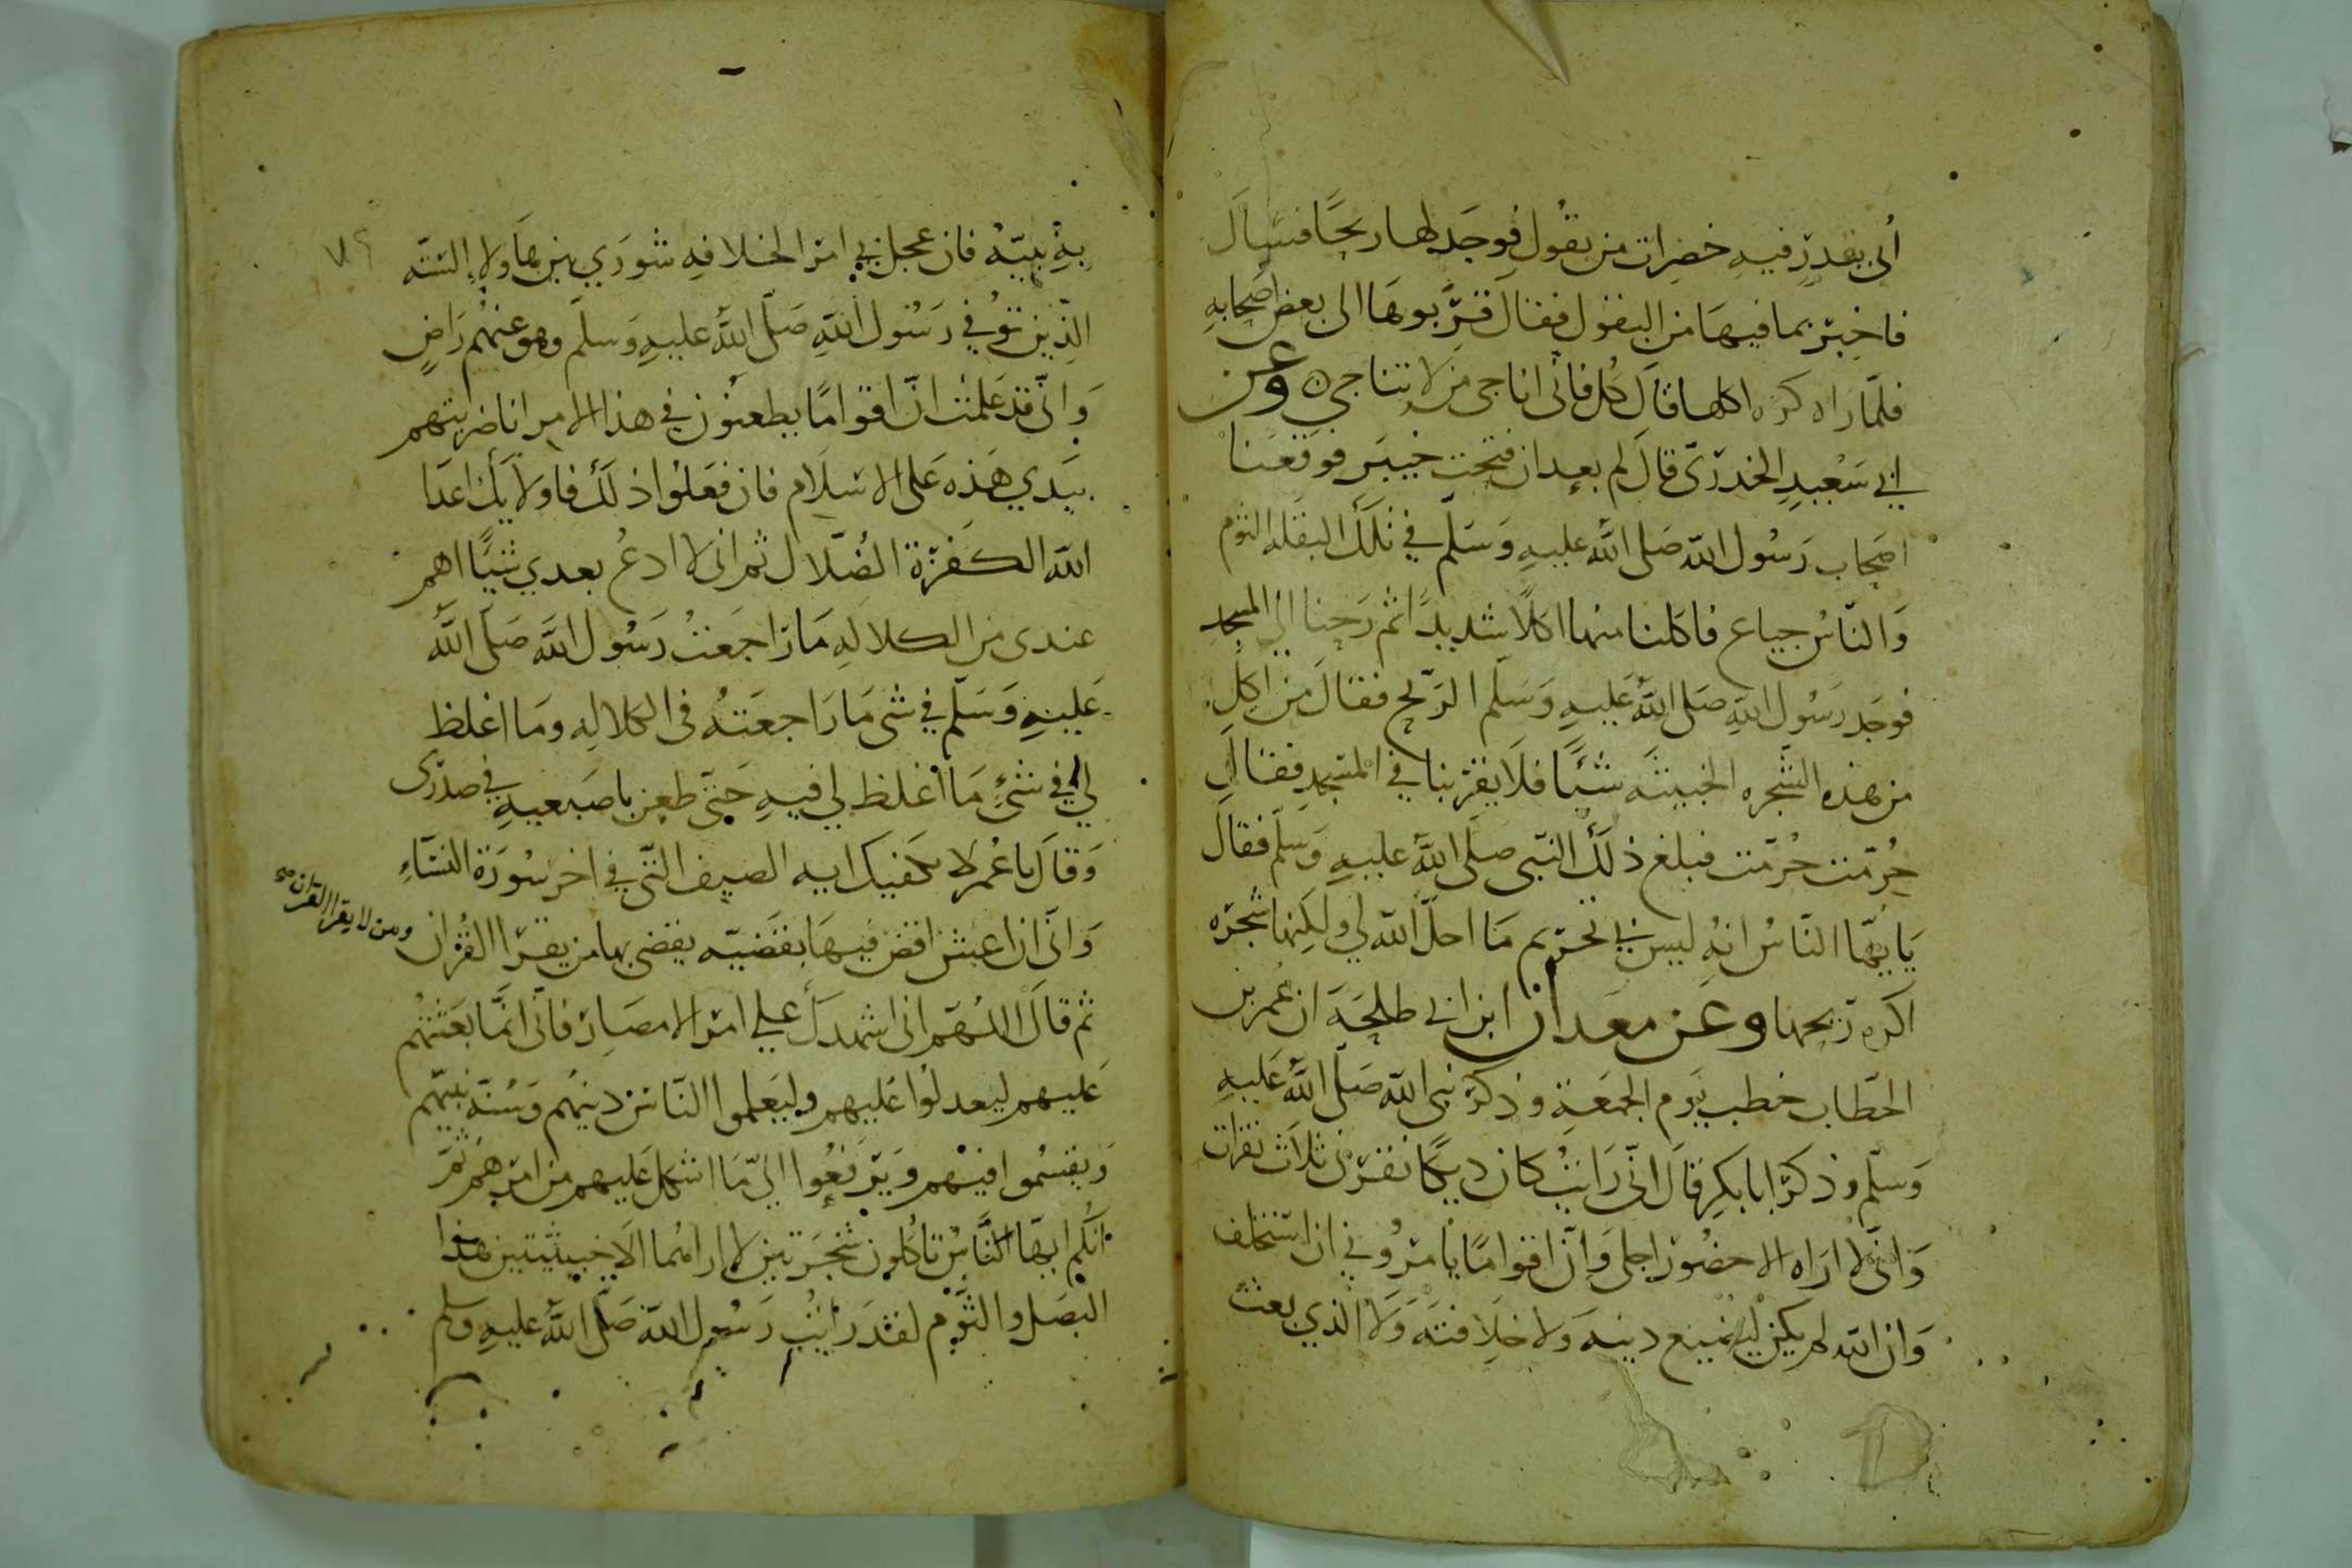 أتى بقدر فيه خضرات من بقول فوجد لها ريحًا فسال
فاخبر بما فيها من البقول فقال قربوها الى بعض اصحابه
فلمّا راه كره اكلها قال كل فانى اناجى من لا تناجي وعن
ابي سعيد الخدرى قال لم بعد ان فتحت خيبر فوقعنا
اصحاب رسول الله صلى الله عليه وسلم في تلك البقله الثوم
والناس جياع فاكلنا منها اكلا شديدًا ثم رحنا الى المسجد
فوجد رسول الله صلى الله عليه وسلم الريح فقال من اكل
من هذه الشجره الخبيثه شيًا فلا يقربنا في المسجد فقال
حُرّمت حُرّمت فبلغ ذلك النبى صلى الله عليه وسلم فقال
يايهّا الناس انه ليس بي تحريم ما احلّ الله لي ولكنها شجره
اكره ريحها وعن معدان ابن ابي طلحة ان عمر بن
الخطاب خطب يوم الجمعة وذكر نبى الله صلى الله عليه
وسلم وذكر ابا بكر قال انى رايت كان ديكًا نقرنى ثلاث نقرات
وانى لا اراه الا حضور اجلى وان اقوامًا يامرونى ان استخلف
وان الله لم يكن ليضيع دينه ولا خلافته ولا الذي بعث
به نبيّه فان عجل بي امر الخلافه شوري بين هاولا الستّه
الذين توفي رسول الله صلى الله عليه وسلم وهو عنهم راضٍ
وانّى قد علمت انّ اقوامًا يطعنون في هذا الامر انا ضربتهم
بيدي هذه على الاسلام فان فعلوا ذلك فاولايك اعدا
الله الكفرة الضلال ثم انى لا ادع بعدي شيًا اهم
عندى من الكلاله ما راجعت رسول الله صلى الله
عليه وسلم في شى ما راجعته فى الكلاله وما اغلظ
لي في شىء ما أغلظ لي فيه حتى طعن باصبعيه في صدرى
وقال يا عمر لا تكفيك ايه الصيف التى في اخر سورة النساء
وانى ان اعيش اقض فيها بقضيّه يقضى بها من يقرا القران
ومن لا يقرا القران صح
ثم قال اللهم انى اشهدك علي امرا الامصار فانى انما بعثتهم
عليهم ليعدلوا عليهم وليعلموا الناس دينهم وسنّة نبيّهم
ويقسموا فيهم ويرفعوا اليّ ما اشكل عليهم من امرهم ثم
انكم ايها الناس تاكلون شجرتين لا اراهما الا خبيثتين هذا
البصل والثوم لقد رايت رسول الله صلى الله عليه وسلم